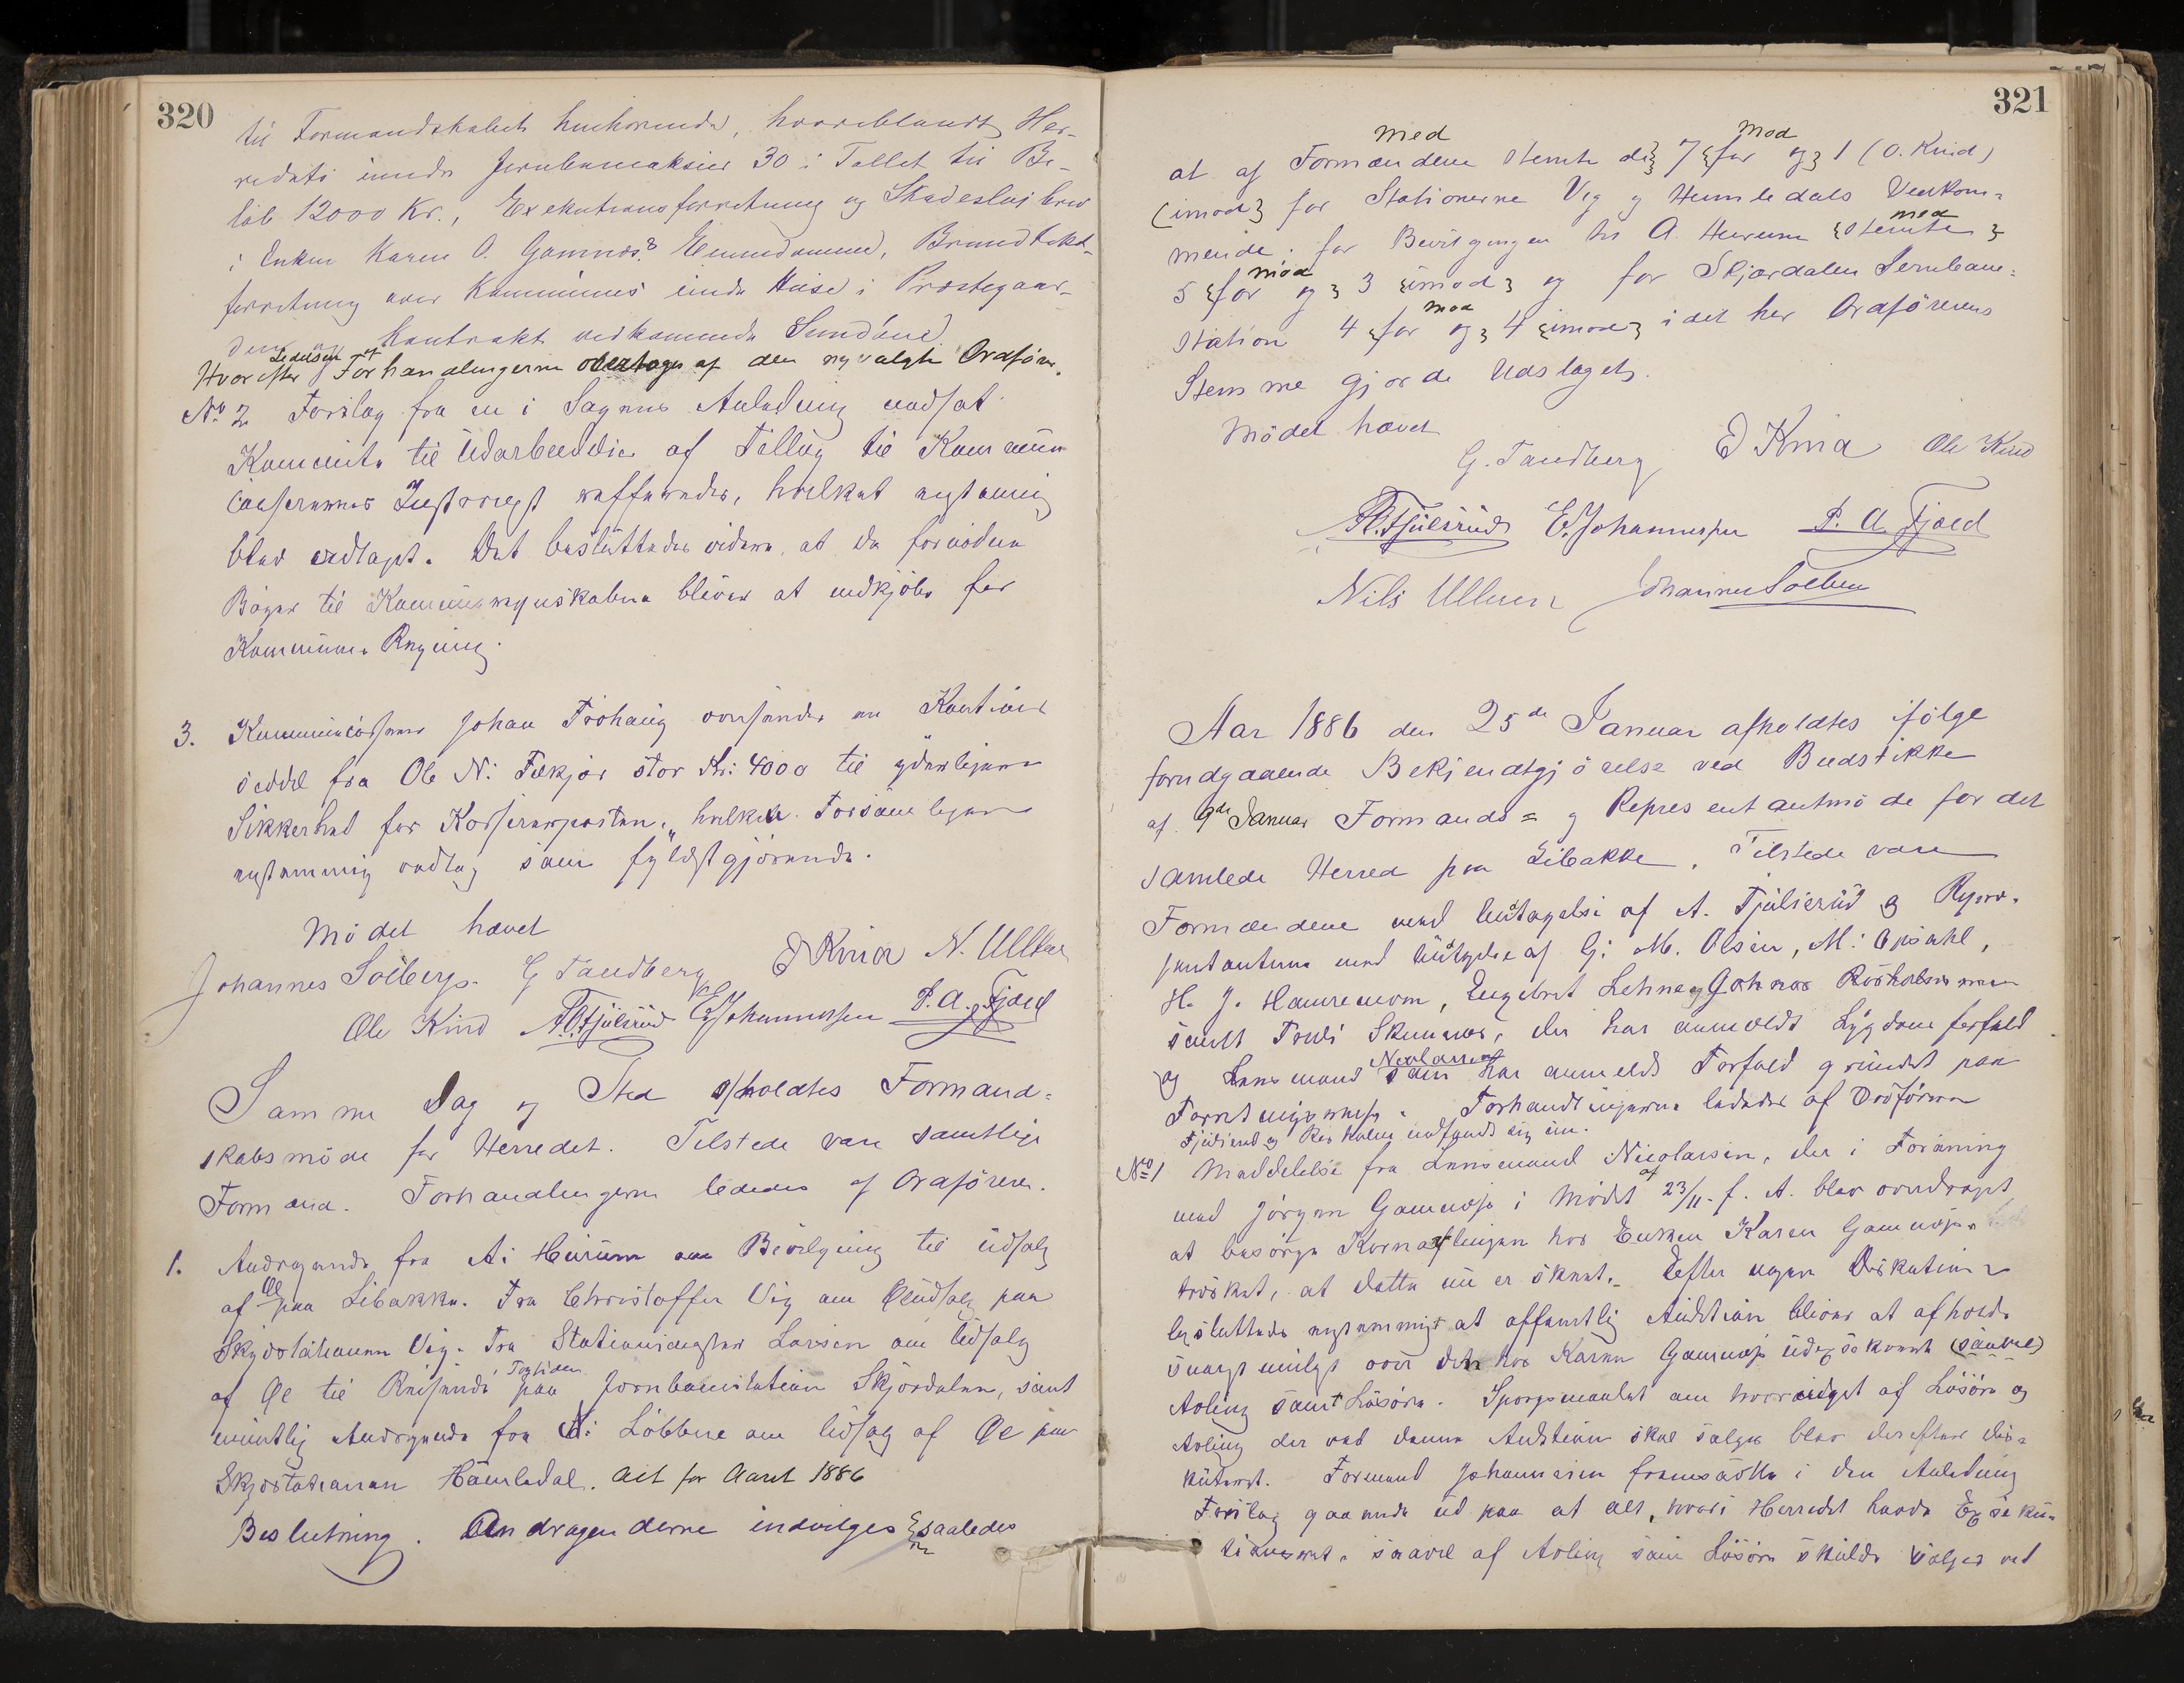 320
til Formandskabet henhörende, hvoriblandt Her-
redets ennda Jernbaneaksier 30 i Tallet til Be-
löb 12000 Kr., Exekutionsforretning og Skadeslösbrev
i Enken Karen O. Gomnæs's Eiendomme, Brandtakst-
forretning over Kommunens Huse i Præstegaar-
den Kontrakt vedkommende Sundöen.
Hvorefter Ledelsen af Forhandlingerne overtoges af den nyvalgte Ordförer.
No 2 Forslag fra en i Sagens Anledning nedsat
Kommite til Udarbeidelse af Tillæg til Kommune
Casserernes Instruks, hvilket enstemmig
blev vedtaget. Det besluttedes videre, at de fornödne
Böger til Kommuneregnskaberne bliver at indkjöbe for
Kommunens Regning.
3. Kommunecasserer Johan Fröhaug oversender en Kautions
seddel fra Ole N. Fækjær stor Kr. 4000 til yderligere
Sikkerhed for Kassererposten, hvilken Forsamlingen
enstemmig vedtog som fyldestgjörende.
Mödet hævet
Johannes Solberg. G Tandberg O Kind N. Ullern
Ole Kind A. Tjulsrud E. Johannessen P. A. Fjeld
Samme Dag og Sted afholdtes Formand-
skabsmöde for Herredet. Tilstede vare samtlige
Formænd. Forhandlingerne lededes af Ordföreren.
1. Andragende fra A. Heirum om Bevilgning til Udsalg
af Öl paa Libakke. Fra Christoffer Vig om Öludsalg paa
Skydsstationen Vig. Fra Stationsmester Larsen om Udsalg
af Öl til Reisende i Togtiden paa Jernbanestation Skjærdalen, samt
mundtlig Andragende fra A. Löbben om Udsalg af Öl paa
Skydsstationen Humledal. Alt for Aaret 1886
Beslutning. Andragenderne indvilges saaledes
321
at af Formændene stemte de med 7 for og mod 1 (O. Kind)
(imod) for Stationerne Vig og Humledals Vedkom-
mende. for Bevilgningen til A Heirum stemte med
5 for og mod 3 imod og for Skjærdalen Jernbane-
station 4 for og mod 4 imod idet her Ordförerens
Stemme gjorde Udslaget.
Mödet hævet
G. Tandberg O Kind Ole Kind
A. Tjulsrud E. Johannessen P. A. Fjeld
Nils Ullern Johannes Solberg
Aar 1886 den 25de Januar afholdtes ifölge
forudgaaende Bekjendtgjörelse ved Budstikke
af 9de Januar Formands- og Representantmöde for det
samlede Herred paa Libakke. Tilstede vare
Formændene med Undtagelse af A. Tjulsrud og Repræ-
sentanterne med Undtagelse af G. M. Olsen, M. Opsahl,
H. J. Hamremoen, Engebret Lehne og
samt Trulls Skinnes, der har anmeldt Sygdomsforfald
og Lensmand Nicolaisen som har anmeldt Forfald grundet paa
Forretningsreise. Forhandlingerne lededes af Ordföreren
Tjulsrud og indfandt sig nu.
No 1 Meddelelse fra Lensmand Nicolaisen, der i Forening
med Jörgen Gomnæs i Mödet af 23/11 f. A. blev overdraget
at besörge Kornavlingen hos Enken Karen Gomnæs
trösket, at dette nu er skeet. Efter nogen Diskution
besluttedes enstemmigt at offentlig Auktion bliver at afholde
snarest muligt over det hos Karen Gomnæs udexekverede (saavel)
Avling samt Lösöre. Spörgsmaalet om hvormeget af Lösöre og
Avling der ved denne Auktion skal sælges blev derefter dis-
kuteret. Formand Johannesen fremsatte i den Anledning
Forslag gaaende ud paa at alt, hvori Herredet havde Exeku-
tionsret, saavel af Avling som Lösöre skulde sælges ved